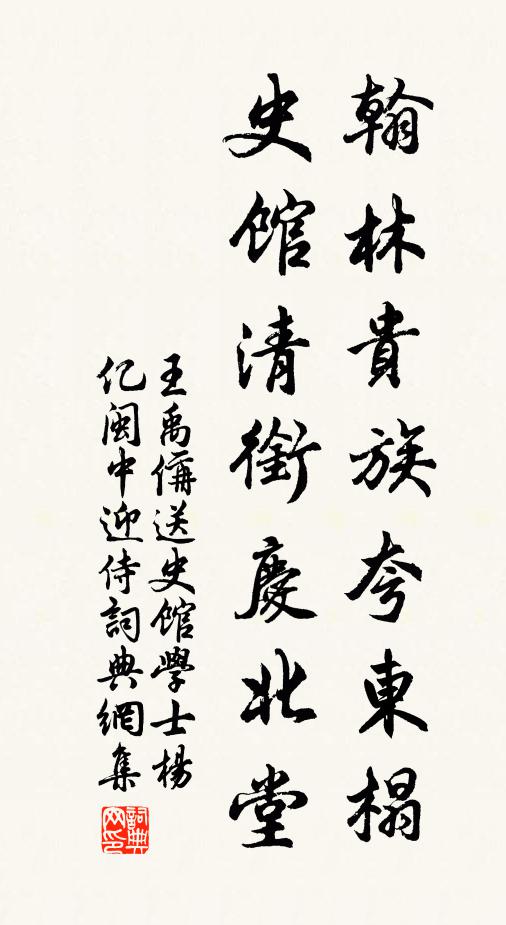 翰林貴族夸東榻
史館清銜慶北堂
王禹偁送史館學士楊
亿閩中迎侍詞典網集
詞典
网印